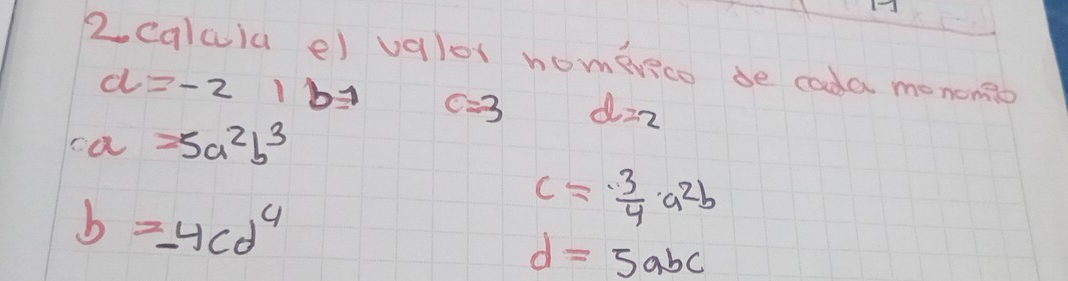 2. Calcula el valor numérico de cada monomio
a=-2 , b=1 c=3 d=2
a =5a²b³
c = \frac{3}{4} · a²b
b =-4cd⁴
d = 5abc